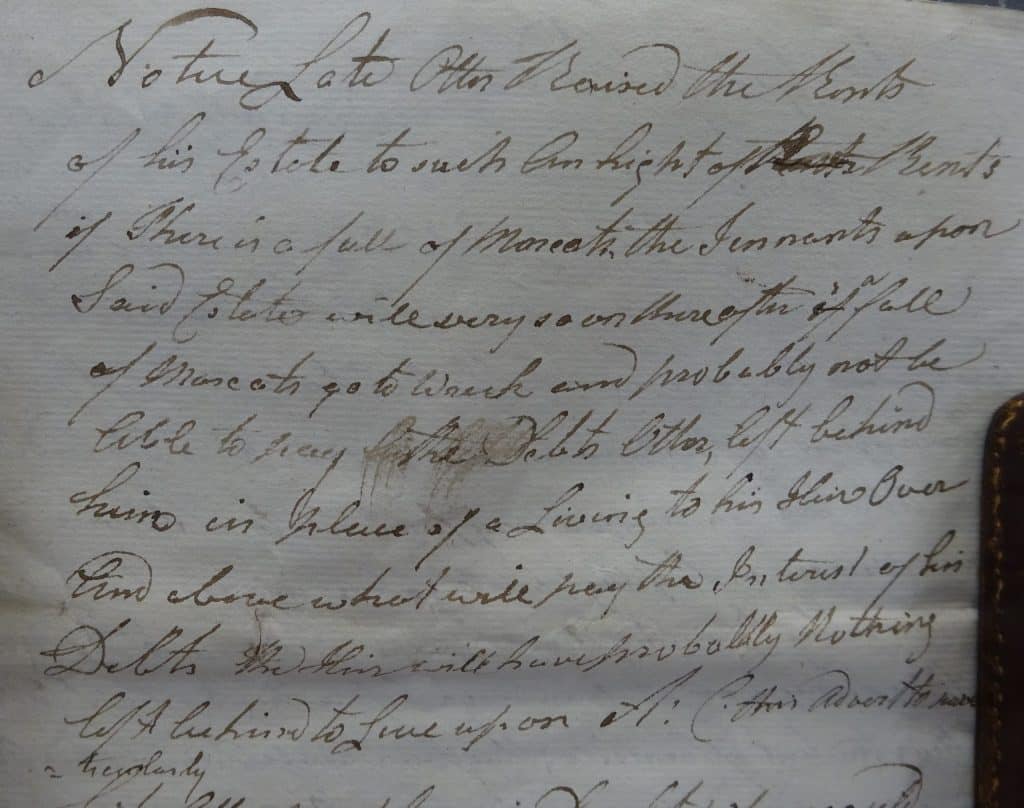 Notice Late Otter Raised the Rents
of his Estate to such An hight of Rents
if There is a fall of Marcats the Tennants upon
Said Estate will very soon thereafter if a fall
of Marcats go to Wreck and probably not be
Able to pay the Debts Otter left behind
him in place of a Living to his Hier Over
And above what will pay the Interest of his
Debts the Hier will have probablly Nothing
left behind to Live upon